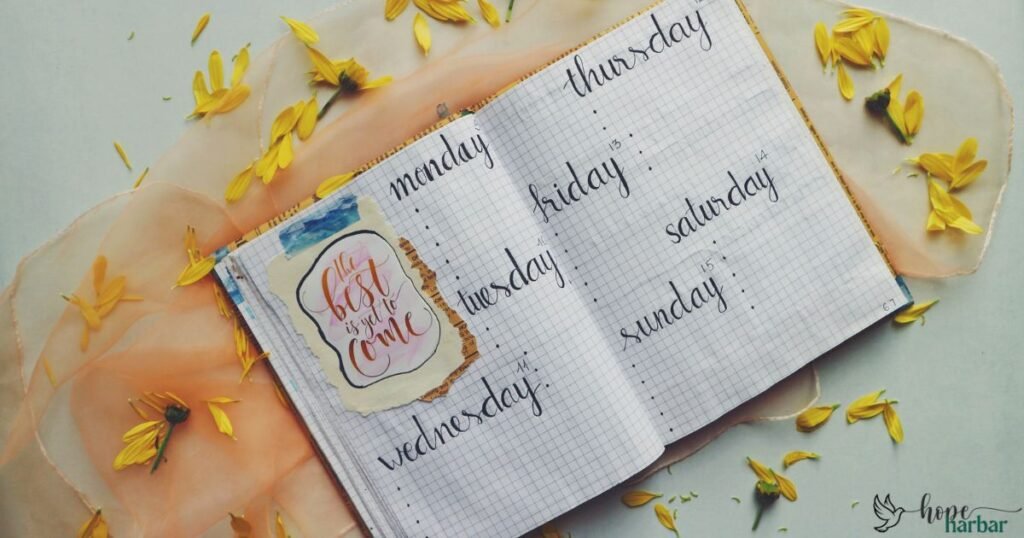 monday
the
best
is yet to
come
tuesday
wednesday
11
thursday
friday
13
saturday
14
sunday
15
67
hope
harbar